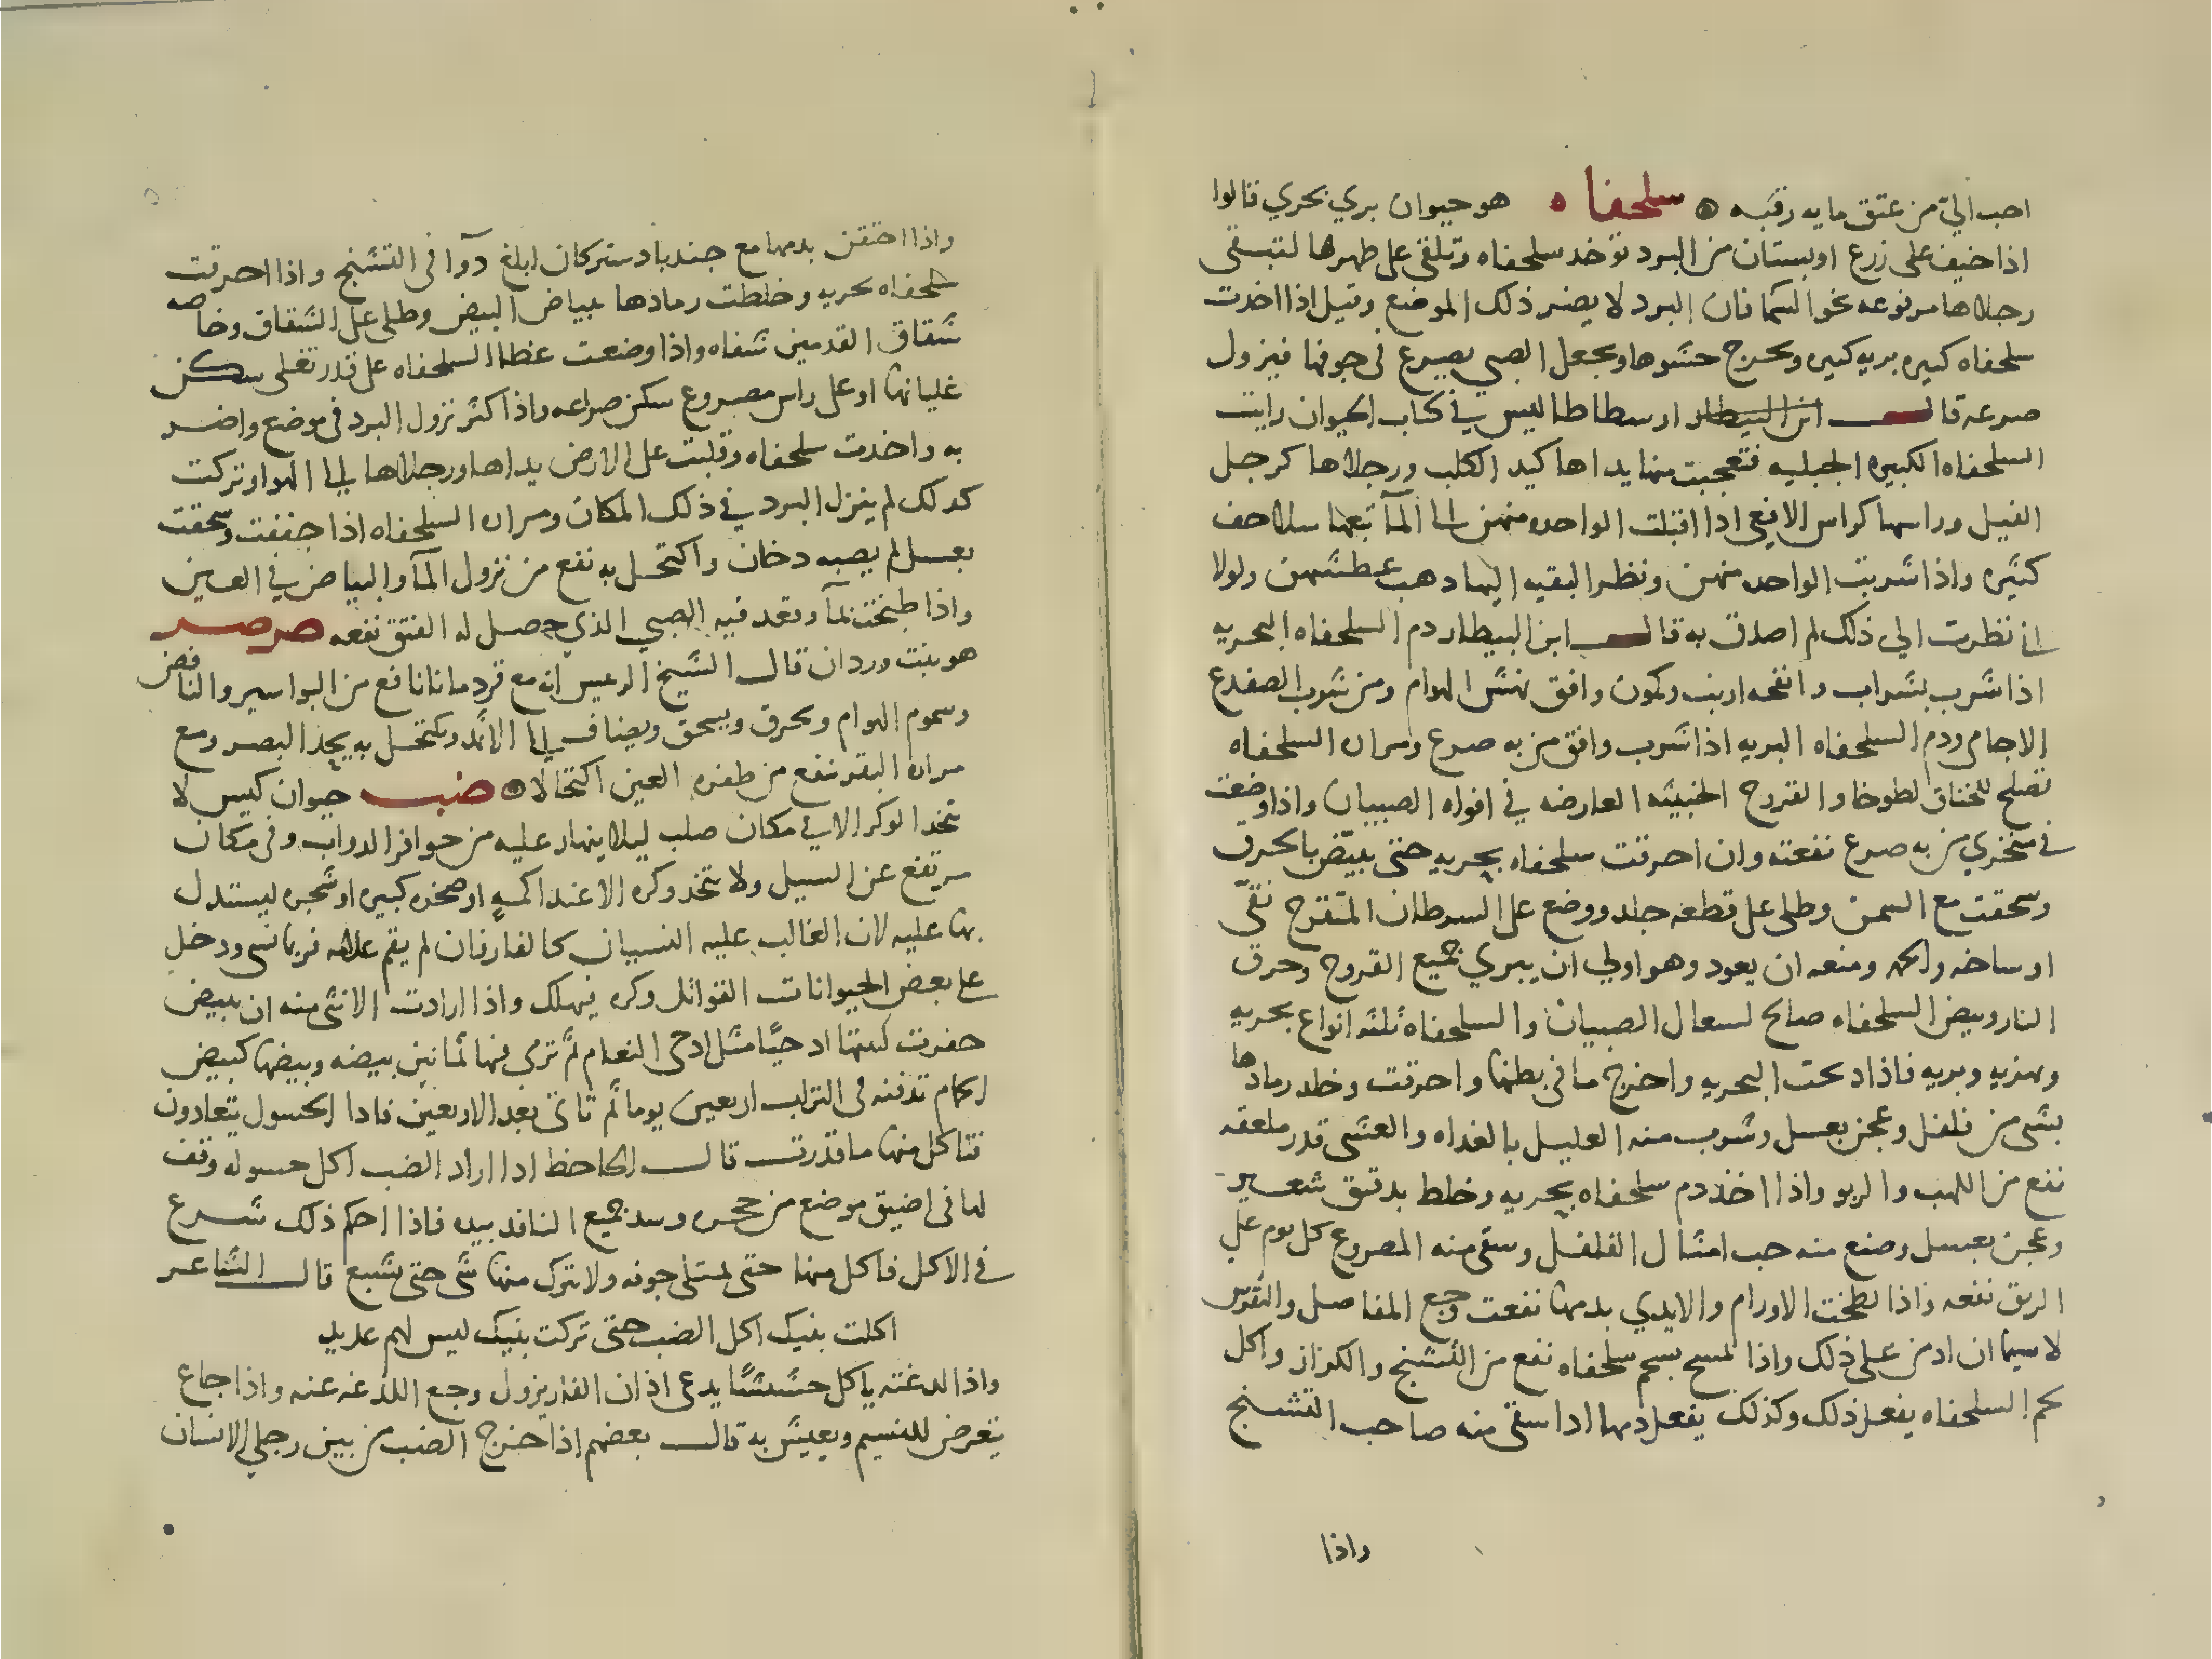 احب الي من عتق مايه رقبه ه سلحفاه ه هو حيوان بري بحري قالوا
اذا خيف على زرع او بستان من البرد توخد سلحفاه وتلقى على ظهرها لتبقى
رجلاها مرفوعه نحو السما فان البرد لا يضر ذلك الموضع وقيل اذا اخدت
سلحفاه كبيره بريه كبيره ويخرج حشوها ويجعل الصبي يصرع في جوفها فيزول
صرعه قال ابن البيطار ارسطاطاليس في كتاب الحيوان رايت
السلحفاه الكبيره الجبليه فتعجبت منها يداها كيد الكلب ورجلاها كرجل
الفيل وراسها كراس الافعى ادا اقبلت الواحده منهن الى المآ تبعها سلاحف
كثيره واذا شربت الواحده منهن ونظر البقيه اليها دهب عطشهن ولولا
اني نظرت الي ذلك لم اصدق به قال ابن البيطار دم السلحفاه البحريه
اذا شرب بشراب وانفحه ارنب وكمون وافق نهش الهوام ومن شرب الضفدع
الاجامي ودم السلحفاه البريه اذا شرب وافق من به صرع ومراره السلحفاه
تصلح للخناق لطوخا والقروح الخبيثه العارضه في افواه الصبيان واذا وضعت
في منخري من به صرع نفعته وان احرقت سلحفاه بحريه حتى تبيض بالحرق
وسحقت مع السمن وطلى على قطعه جلد ووضع على السرطان المتقرح نقى
اوساخه والحمه ومنعه ان يعود وهو اولي ان يبري جميع القروح وحرق
النار وبيض السلحفاه صالح لسعال الصبيان والسلحفاه ثلثه انواع بحريه
ونهريه وبريه فاذا دبحت البحريه واخرج ما في بطنها واحرقت وخلط رمادها
بشى من فلفل وعجن بعسل وشرب منه العليل بالغداه والعشى قدر ملعقه
نفع من اللهب والربو واذا اخذ دم سلحفاه بحريه وخلط بدقيق شعير
وعجن بعسل وصنع منه حب امثال الفلفل وسقى منه المصروع كل يوم علي
الريق نفعه واذا لطخت الاورام والايدي بدمها نفعت وجع المفاصل والنقرس
لاسيما ان ادمن على ذلك واذا تمسح بشحم سلحفاه نفع من التشنج والكزاز واكل
لحم السلحفاه يفعل ذلك وكذلك يفعل دمها ادا سقى منه صاحب التشنج
واذا
واذا احتقن بدمها مع جندبادستر كان ابلغ دوآ في التشنج واذا احرقت
سلحفاه بحريه وخلطت رمادها ببياض البيض وطلى على الشقاق وخاصه
شقاق القدمين شفاه واذا وضعت غطا السلحفاه على قدر تغلى سكن
غليانها او على راس مصروع سكن صراعه واذا كثر نزول البرد في موضع واضر
به واخدت سلحفاه وقلبت على الارض يداها ورجلاها الي الهوا وتركت
كدلك لم ينزل البرد في ذلك المكان ومراره السلحفاه اذا جففت وسحقت
بعسل لم يصبه دخان واكتحل به نفع من نزول المآ والبياض في العين
واذا طبخت بمآ وقعد فيه الصبي الذي حصل له الفتق نفعه صرصر
هو بنت وردان قال الشيخ الرئيس انه مع قردمانا نافع من البواسير والنافض
وسموم الهوام ويحرق ويسحق ويضاف الي الاثمد ويكتحل به يحد البصر ومع
مراره البقر نفع من ظفره العين اكتحالا ه ضب حيوان كيس لا
يتخد الوكر الا في مكان صلب ليلا ينهار عليه من حوافر الدواب وفي مكان
مرتفع عن السيل ولا يتخد وكره الا عند اكمه او صخره كبيره او شجره ليستدل
بها عليه لان الغالب عليه النسيان كالفار فان لم يقم علامه فربما نسى ودخل
على بعض الحيوانات القواتل وكره فيهلك واذا ارادت الانثى منه ان تبيض
حفرت لبيتها ادحيا مثل ادحى النعام ثم ترمى فيها ثمانين بيضه وبيضها كبيض
الحمام تدفنه في التراب اربعين يوما ثم تاتى بعد الاربعين فادا الحسول يتعادون
فتاكل منها ما قدرت قال الجاحظ ادا اراد الضب اكل حسوله وقف
لها في اضيق موضع من جحره وسد جميع النافد بيده فاذا احكم ذلك شرع
في الاكل فاكل منها حتى يمتلى جوفه ولا يترك منها شى حتى يشبع قال الشاعر
اكلت بنيك اكل الضب حتى تركت بنيك ليس لهم عديد
واذا لدغته ياكل حشيشا يدعى اذان الفار يزول وجع اللدغه عنه واذا جاع
يتعرض للنسيم ويعيش به قال بعضهم اذا خرج الضب من بين رجلي الانسان